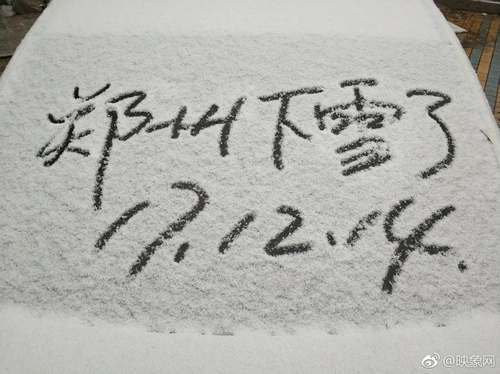 郑州下雪了
17.12.14.
@映象网